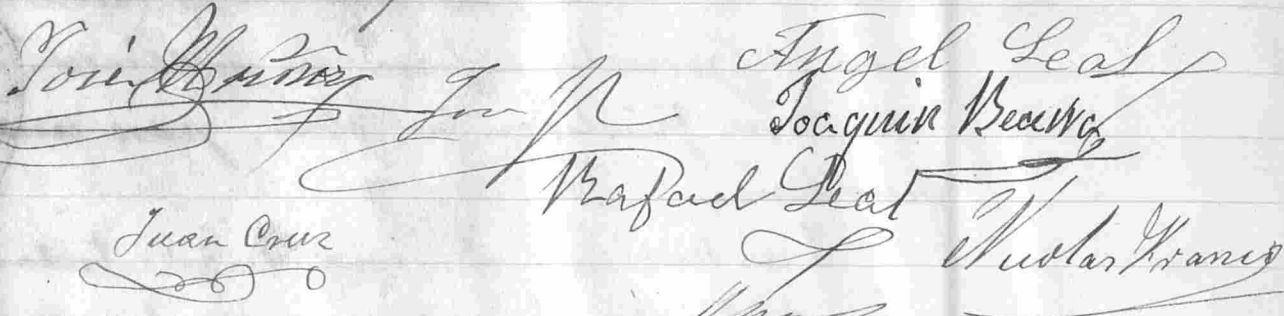 José Muñoz
Angel Leal
Joaquin
Rafael Leal
Juan Cruz
Nicolas Franco